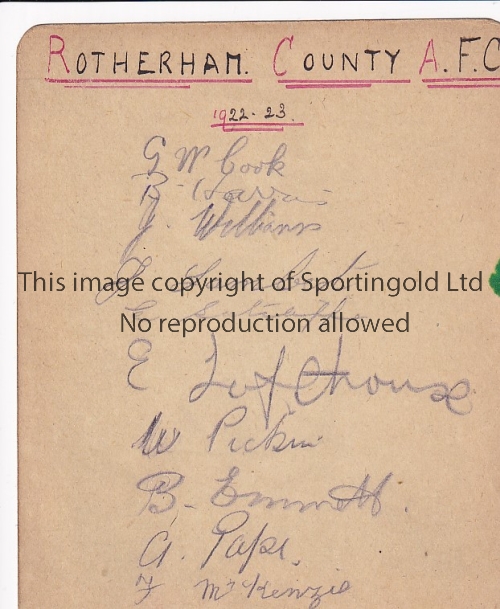 ROTHERHAM. COUNTY A.F.C
1922-23.
G W Cook
B.
J. Williams
This image copyright of Sportingold Ltd
No reproduction allowed
E Lofthouse
W Pickin
B. Emmett.
A. Pape.
F McKenzie